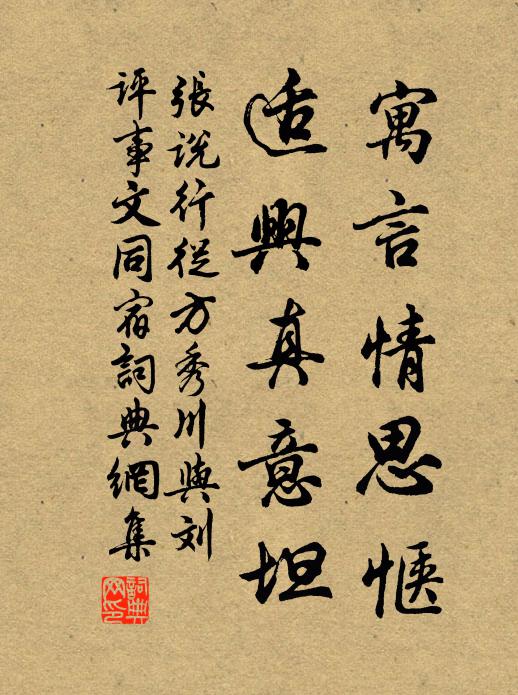 寓言情思惬
适興真意坦
張説行從方秀川與刘
評事文同宿詞典網集
詞典网印